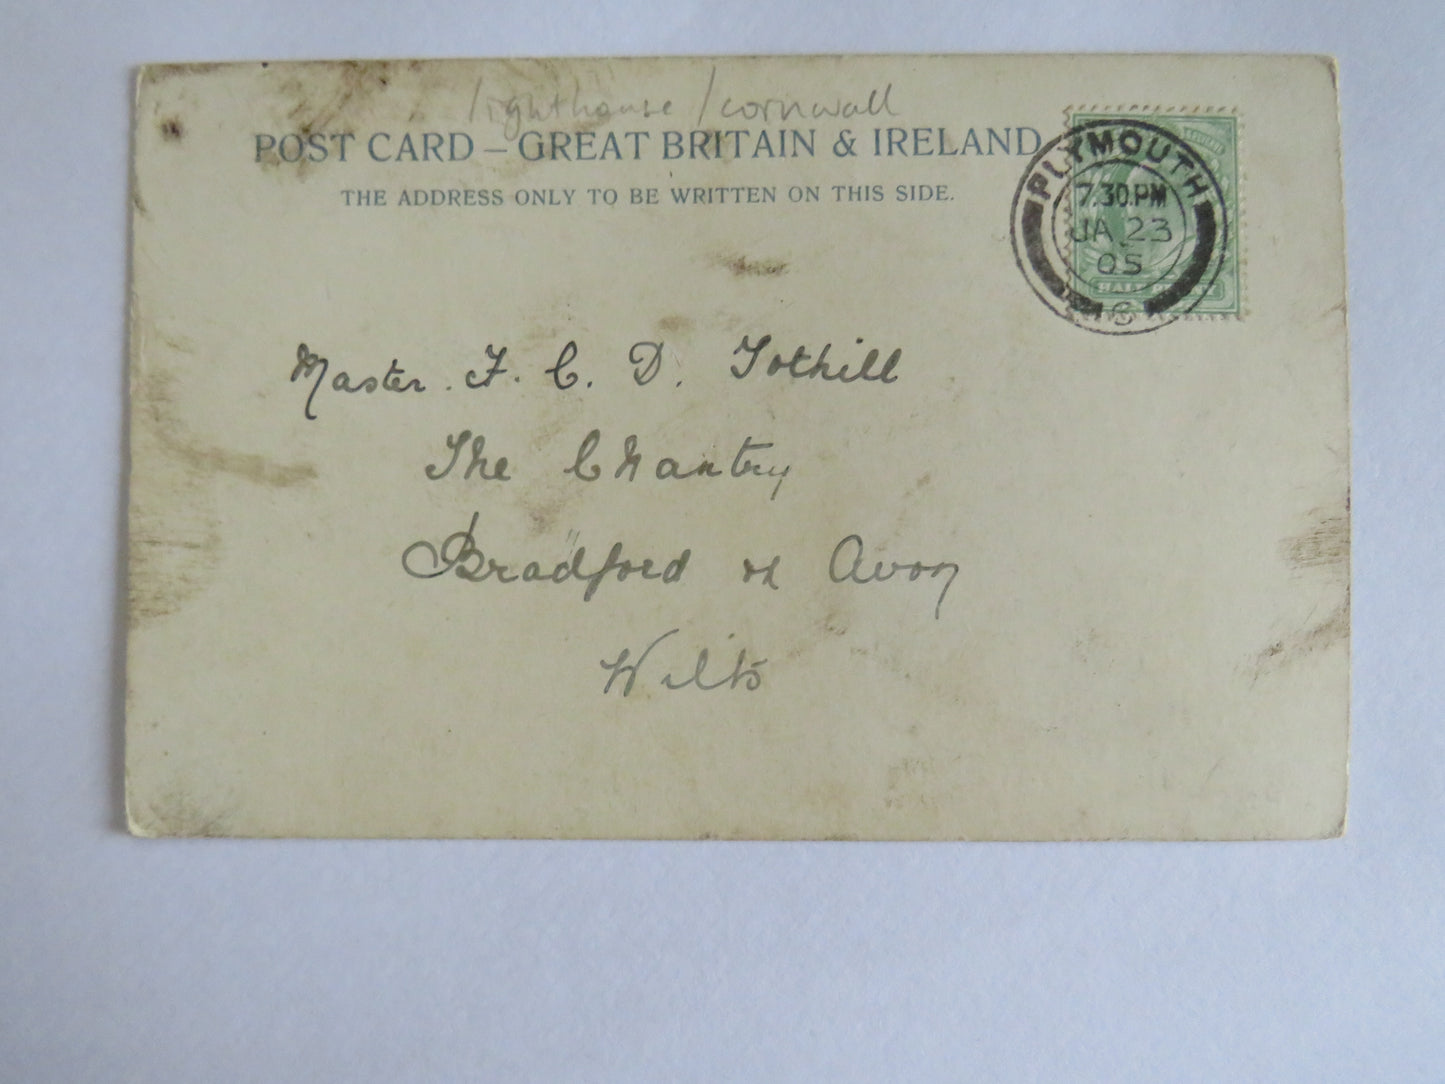 lighthouse / cornwall
POST CARD – GREAT BRITAIN & IRELAND
THE ADDRESS ONLY TO BE WRITTEN ON THIS SIDE.
PLYMOUTH
7.30.PM
JA 23
05
6
HALF PENNY
Master. F. C. D. Tothill
The Chantry
Bradford on Avon
Wilts